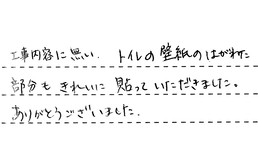 工事内容に無い、トイレの壁紙のはがれた
部分もきれいに貼っていただきました。
ありがとうございました。